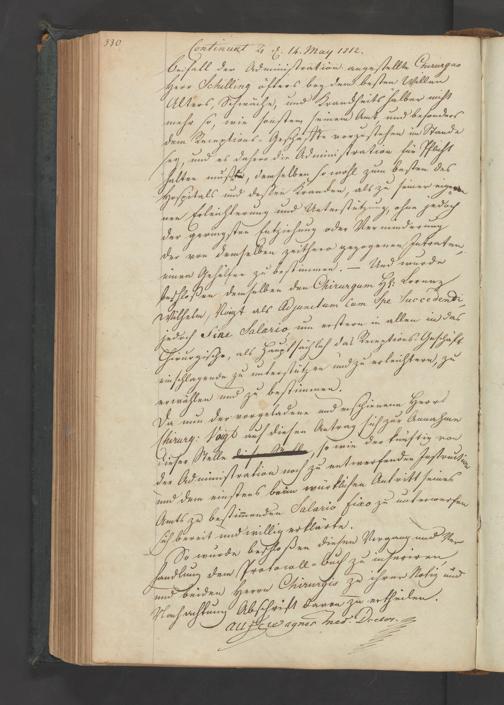 330
Continunt 4 d. 14. May 1812.
beÿfall der Administration angestellte Chirurgus
Herr Schilling öfters beÿ dem besten Willen
Alters, Schwäche, und Krankheits halber nicht
mehr so, wie sonsten seinem Amt und besonders
dem Receptions-Geschäfte vorzustehen im Stande
seÿ, und es daher die Administration für Pflicht
halten müsste, demselben sowohl zum besten des
Hospitals und dessen Kranken, als zu seiner eige-
nen Erleichterung und Unterstützung, ohne jedoch
der geringsten Entziehung oder Verminderung
der von demselben zeither gezogenen
einen Gehülfen zu bestimmen. — Und wurde
beschlossen demselben den Chirurgum Hr. Lorenz
Wilhelm Voigt als Adjunctum cum Spe Succedendi,
jedoch Sine Salario, um erstern in allen in das
Chirurgische, als hauptsächlich das Receptions-Geschäft
einschlagende zu unterstützen und zu erleichtern, zu
erwählen und zu bestimmen.
Da nun der vorgeladene und erschienene Herr
Chirurg: Voigt auf diesen Antrag sich zur Annahme
dieser Stelle, so wie der künftig von
der Administration noch zu entwerfenden Instruction
und dem einstens beim würklichen Antritt seines
Amts zu bestimmenden Salario fixo zu unterwerfen
sich bereit und willig erklärte.
So wurde beschlossen diesen Vorgang und Ver-
handlung dem Protocoll-buch zu inseriren
und beiden Herrn Chirurgis zu ihrer Notiz und
Nachachtung Abschrift davon zu ertheilen.
Wagner med. Doctor.